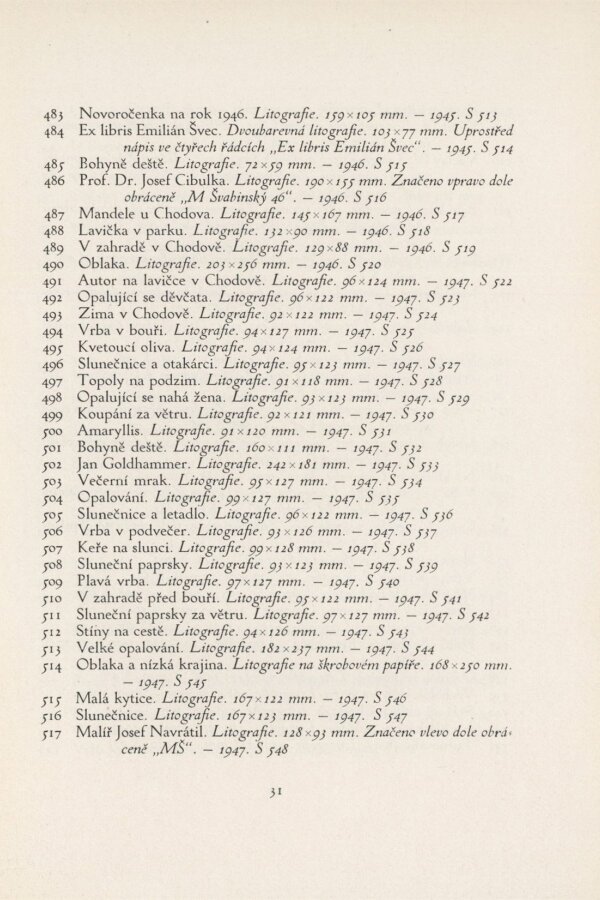 483 Novoročenka na rok 1946. Litografie. 159×105 mm. — 1945. S 513
484 Ex libris Emilián Švec. Dvoubarevná litografie. 103×77 mm. Uprostřed
nápis ve čtyřech řádcích „Ex libris Emilián Švec“. — 1945. S 514
485 Bohyně deště. Litografie. 72×59 mm. — 1946. S 515
486 Prof. Dr. Josef Cibulka. Litografie. 190×155 mm. Značeno vpravo dole
obráceně „M Švabinský 46“. — 1946. S 516
487 Mandele u Chodova. Litografie. 145×167 mm. — 1946. S 517
488 Lavička v parku. Litografie. 132×90 mm. — 1946. S 518
489 V zahradě v Chodově. Litografie. 129×88 mm. — 1946. S 519
490 Oblaka. Litografie. 203×256 mm. — 1946. S 520
491 Autor na lavičce v Chodově. Litografie. 96×124 mm. — 1947. S 522
492 Opalující se děvčata. Litografie. 96×122 mm. — 1947. S 523
493 Zima v Chodově. Litografie. 92×122 mm. — 1947. S 524
494 Vrba v bouři. Litografie. 94×127 mm. — 1947. S 525
495 Kvetoucí oliva. Litografie. 94×124 mm. — 1947. S 526
496 Slunečnice a otakárci. Litografie. 95×123 mm. — 1947. S 527
497 Topoly na podzim. Litografie. 91×118 mm. — 1947. S 528
498 Opalující se nahá žena. Litografie. 93×123 mm. — 1947. S 529
499 Koupání za větru. Litografie. 92×121 mm. — 1947. S 530
500 Amaryllis. Litografie. 91×120 mm. — 1947. S 531
501 Bohyně deště. Litografie. 160×111 mm. — 1947. S 532
502 Jan Goldhammer. Litografie. 242×181 mm. — 1947. S 533
503 Večerní mrak. Litografie. 95×127 mm. — 1947. S 534
504 Opalování. Litografie. 99×127 mm. — 1947. S 535
505 Slunečnice a letadlo. Litografie. 96×122 mm. — 1947. S 536
506 Vrba v podvečer. Litografie. 93×126 mm. — 1947. S 537
507 Keře na slunci. Litografie. 99×128 mm. — 1947. S 538
508 Sluneční paprsky. Litografie. 93×123 mm. — 1947. S 539
509 Plavá vrba. Litografie. 97×127 mm. — 1947. S 540
510 V zahradě před bouří. Litografie. 95×122 mm. — 1947. S 541
511 Sluneční paprsky za větru. Litografie. 97×127 mm. — 1947. S 542
512 Stíny na cestě. Litografie. 94×126 mm. — 1947. S 543
513 Velké opalování. Litografie. 182×237 mm. — 1947. S 544
514 Oblaka a nízká krajina. Litografie na škrobovém papíře. 168×250 mm.
— 1947. S 545
515 Malá kytice. Litografie. 167×122 mm. — 1947. S 546
516 Slunečnice. Litografie. 167×123 mm. — 1947. S 547
517 Malíř Josef Navrátil. Litografie. 128×93 mm. Značeno vlevo dole obrá-
ceně „MŠ“. — 1947. S 548
31